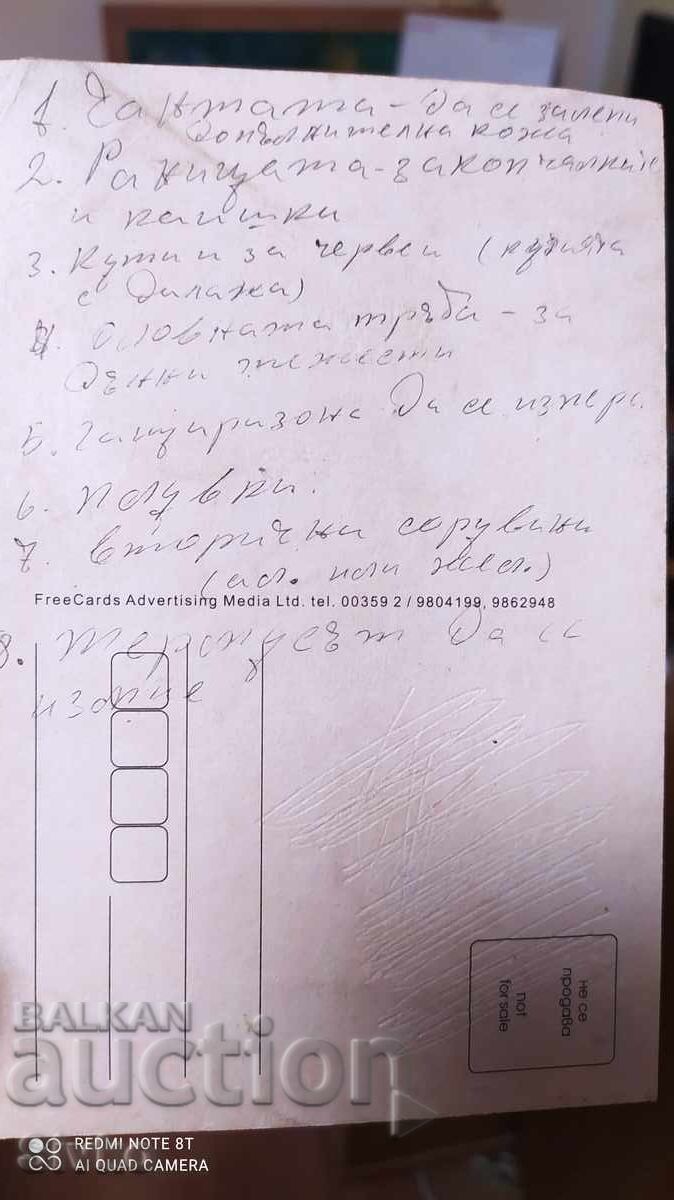 1. Чантата - да се залепи
допълнителна кожа
2. Раницата - закопчалките
и каишки
3. Кутии за червеи (кутията
с Дилана)
4. Оловната тръба - за
дънки тежести
5. Гащиризона да се изпере
6. Полувки.
7. вторични
(ал. или жел.)
FreeCards Advertising Media Ltd. tel. 00359 2 / 9804199, 9862948
8. Термусът да се
не се
продава
not
for sale
BALKAN
auction
REDMI NOTE 8T
AI QUAD CAMERA